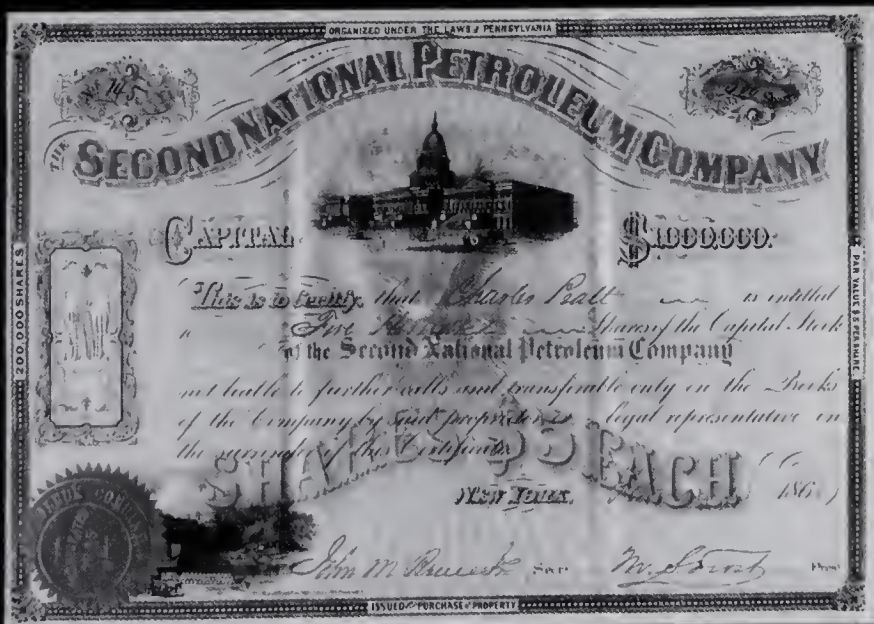 ORGANIZED UNDER THE LAWS of PENNSYLVANIA
No 145
THE
SECOND NATIONAL PETROLEUM COMPANY
CAPITAL $1000.000.
This is to Certify, that Charles Pratt is entitled
to Five Hundred Shares of the Capital Stock
of the Second National Petroleum Company
not liable to further calls and transferable only on the Books
of the Company by said proprietor legal representative on
the surrender of this Certificate
SHARES $5 EACH
New York, 186
John M Sec. Pres
200,000 SHARES
PAR VALUE $5 PER SHARE
ISSUED for PURCHASE of PROPERTY